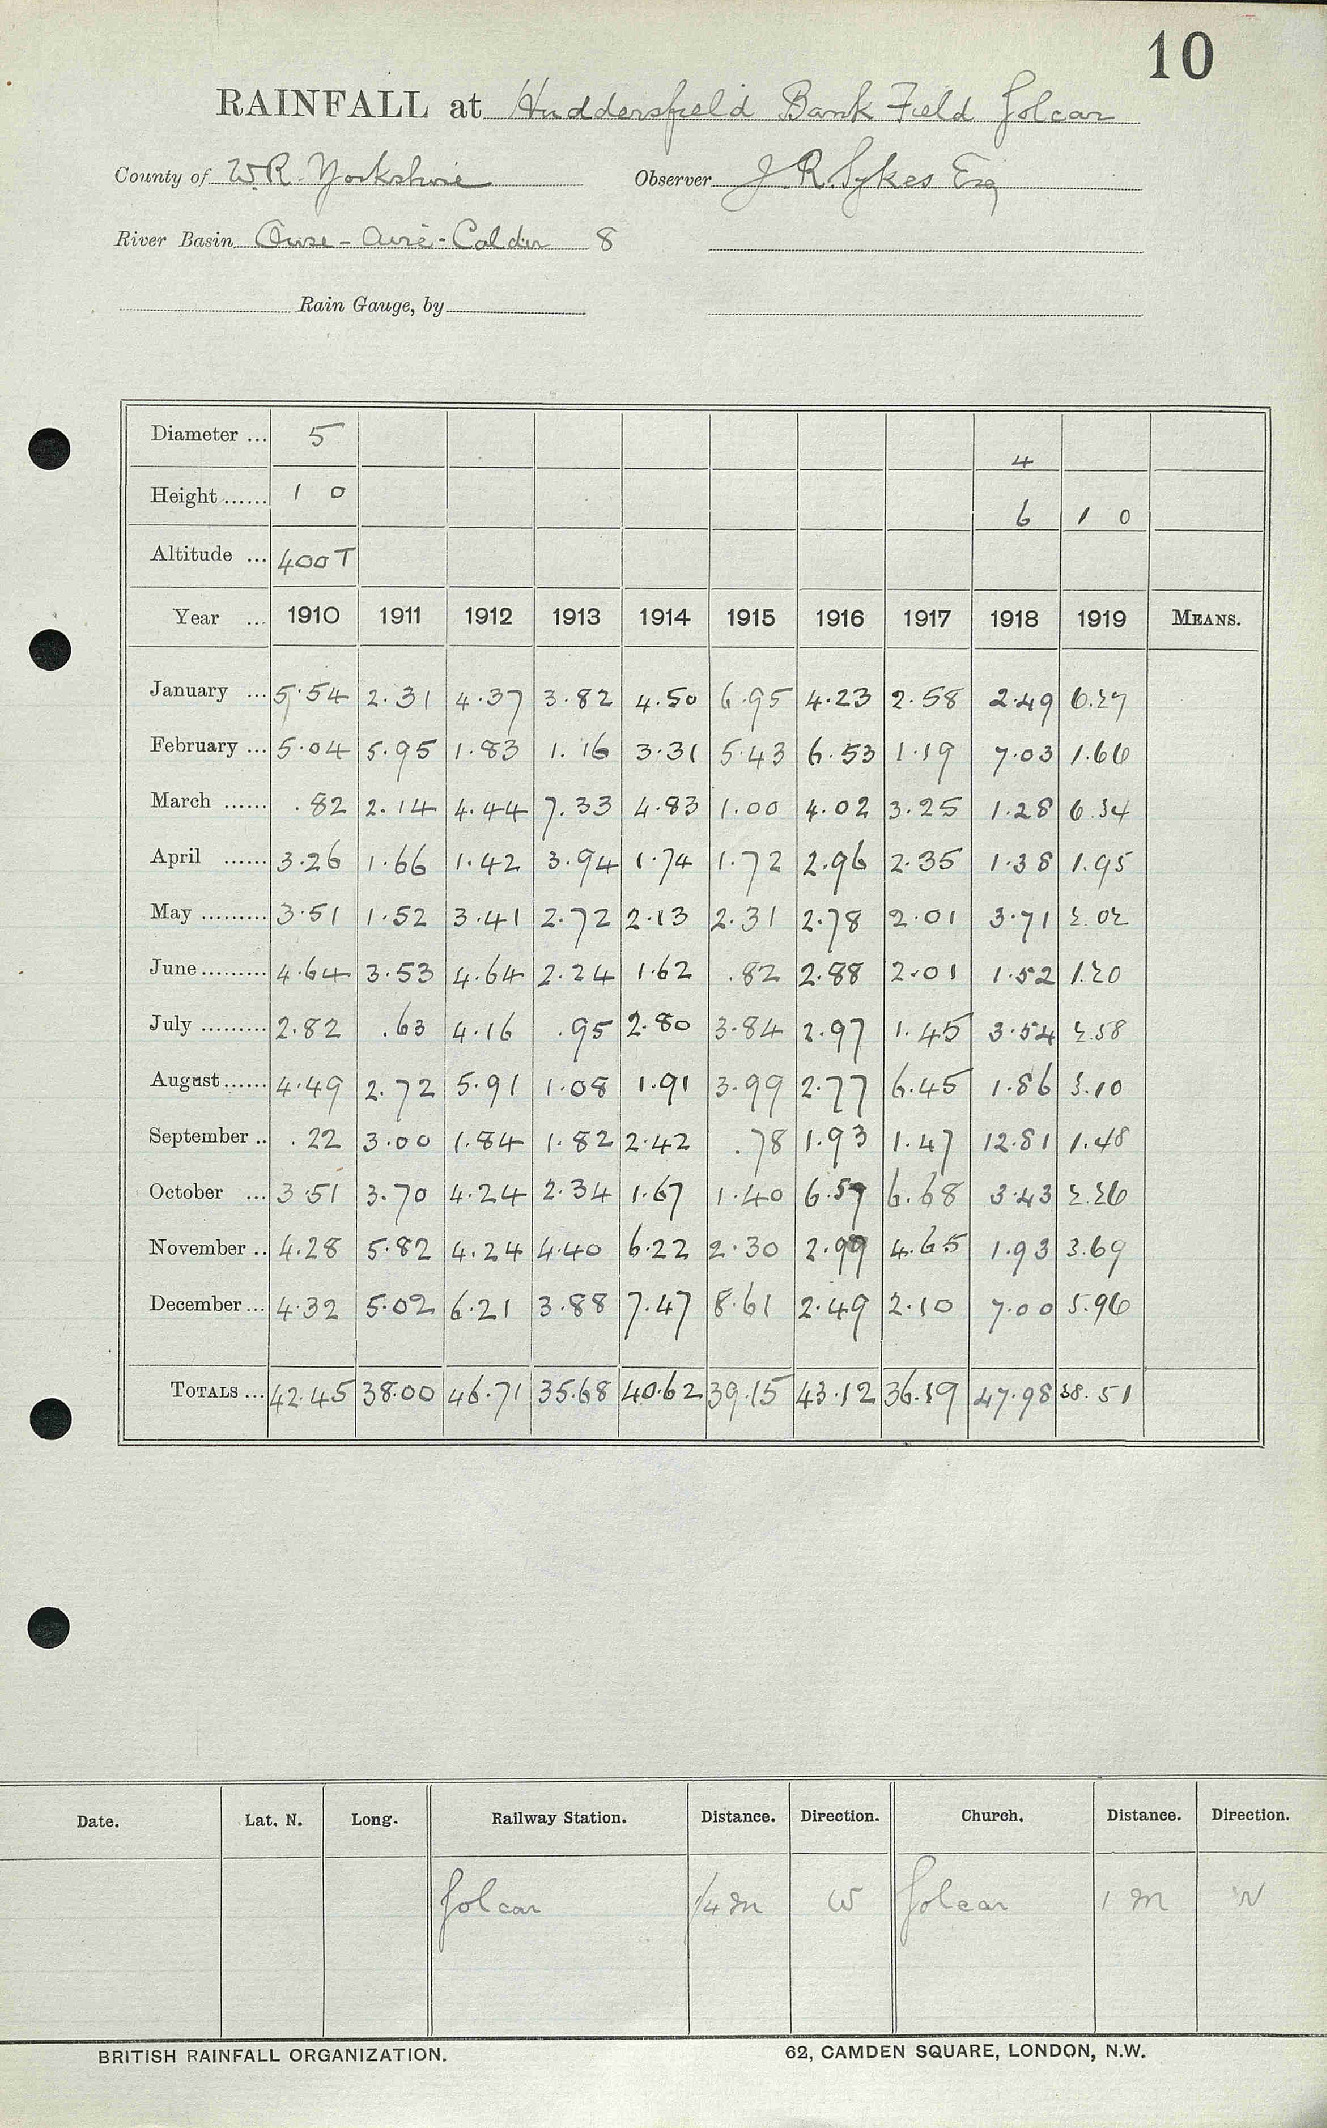 10
RAINFALL at Huddersfield Bank Field Golcar
County of W.R. Yorkshire Observer J. R. Sykes Esq
River Basin Ouse - Aire - Calder 8
Rain Gauge, by
Diameter ... 5 4
Height ...... 1 0 6 1 0
Altitude ... 400 T
Year ... 1910 1911 1912 1913 1914 1915 1916 1917 1918 1919 MEANS.
January ... 5.54 2.31 4.37 3.82 4.50 6.95 4.23 2.58 2.49 6.27
February ... 5.04 5.95 1.83 1.16 3.31 5.43 6.53 1.19 7.03 1.66
March ...... .82 2.14 4.44 7.33 4.83 1.00 4.02 3.25 1.28 6.34
April ...... 3.26 1.66 1.42 3.94 1.74 1.72 2.96 2.35 1.38 1.95
May ......... 3.51 1.52 3.41 2.72 2.13 2.31 2.78 2.01 3.71 2.02
June ......... 4.64 3.53 4.64 2.24 1.62 .82 2.88 2.01 1.52 1.20
July ......... 2.82 .63 4.16 .95 2.80 3.84 2.97 1.45 3.54 2.58
August ...... 4.49 2.72 5.91 1.08 1.91 3.99 2.77 6.45 1.86 3.10
September .. .22 3.00 1.84 1.82 2.42 .78 1.93 1.47 12.81 1.48
October ... 3.51 3.70 4.24 2.34 1.67 1.40 6.57 6.68 3.43 2.26
November .. 4.28 5.82 4.24 4.40 6.22 2.30 2.99 4.65 1.93 3.69
December ... 4.32 5.02 6.21 3.88 7.47 8.61 2.49 2.10 7.00 5.96
TOTALS ... 42.45 38.00 46.71 35.68 40.62 39.15 43.12 36.19 47.98 38.51
Date. Lat. N. Long. Railway Station. Distance. Direction. Church. Distance. Direction.
Golcar 1/4 m W Golcar 1 m N
BRITISH RAINFALL ORGANIZATION. 62, CAMDEN SQUARE, LONDON, N.W.